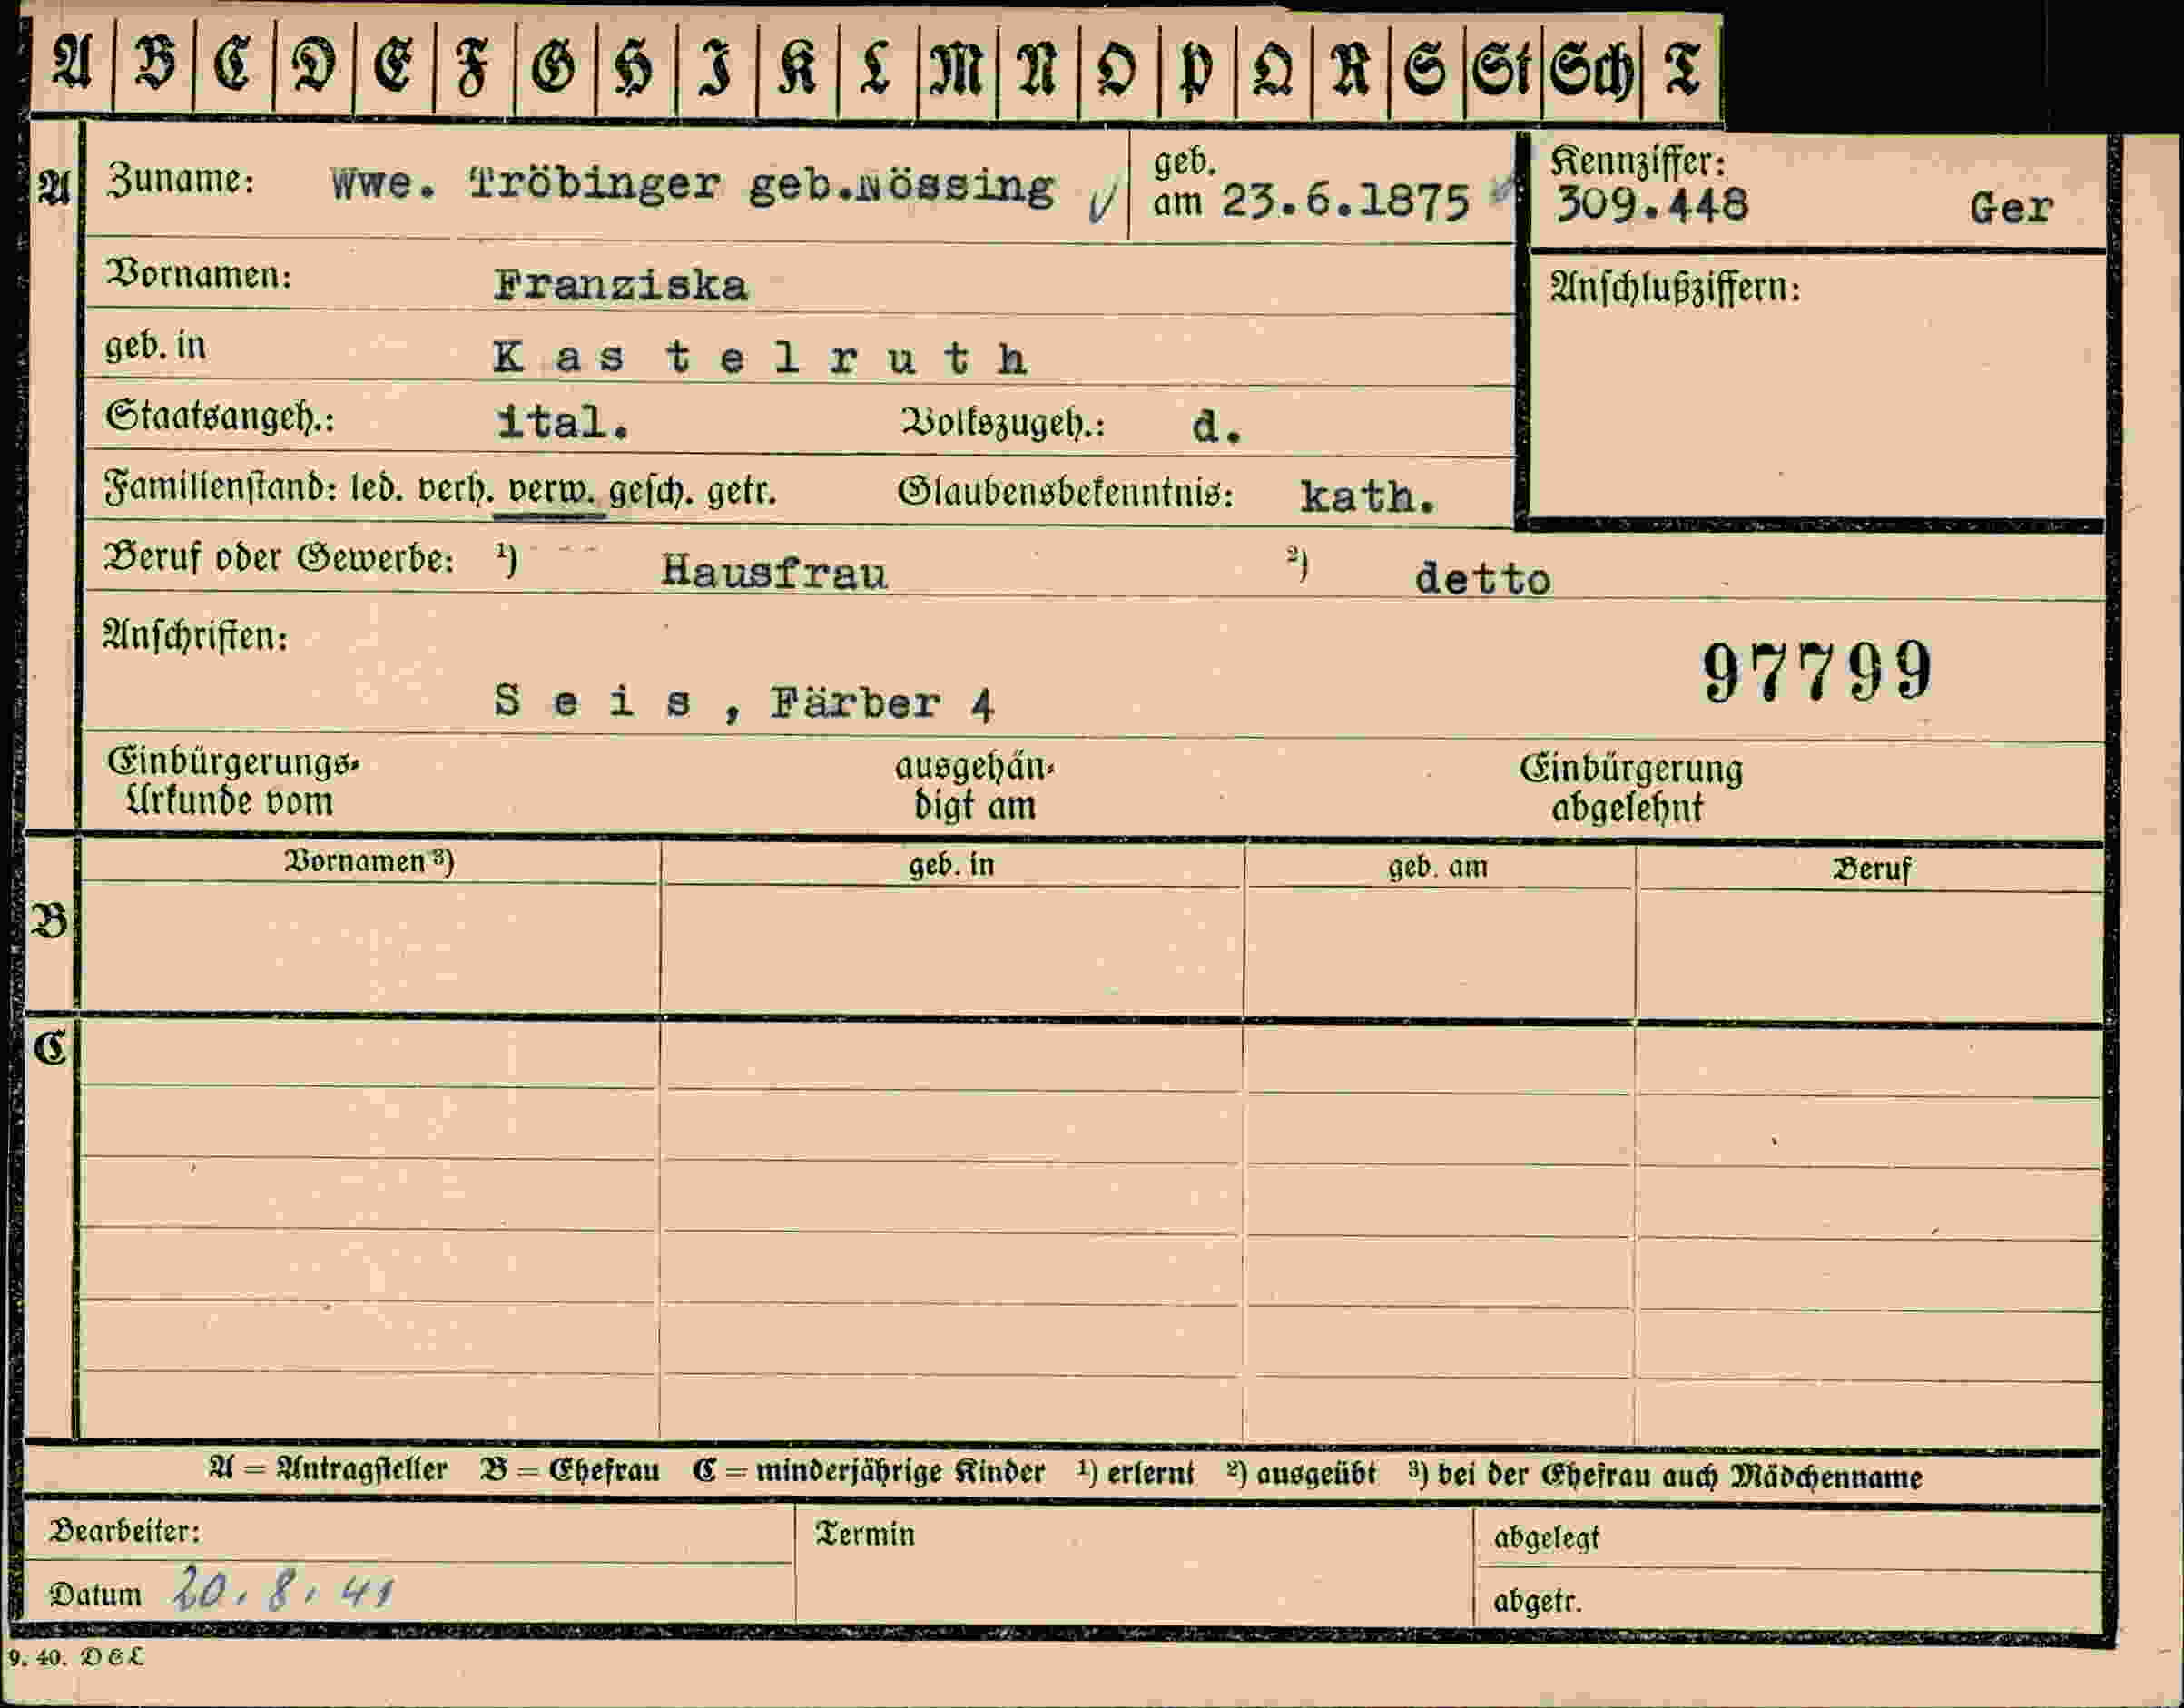 A B C D E F G H I K L M N O P Q R S St Sch T
A Zuname: Wwe. Tröbinger geb.Nössing geb. am 23.6.1875 Kennziffer: 309.448 Ger
Vornamen: Franziska Anschlußziffern:
geb. in K a s t e l r u t h
Staatsangeh.: ital. Volkszugeh.: d.
Familienstand: led. verh. verw. gesch. getr. Glaubensbekenntnis: kath.
Beruf oder Gewerbe: ¹) Hausfrau ²) detto
Anschriften:
97799
S e i s , Färber 4
Einbürgerungs- ausgehän- Einbürgerung
Urkunde vom digt am abgelehnt
Vornamen ³) geb. in geb. am Beruf
B
C
A = Antragsteller B = Ehefrau C = minderjährige Kinder ¹) erlernt ²) ausgeübt ³) bei der Ehefrau auch Mädchenname
Bearbeiter: Termin abgelegt
Datum 20. 8. 41 abgetr.
9. 40. D & L